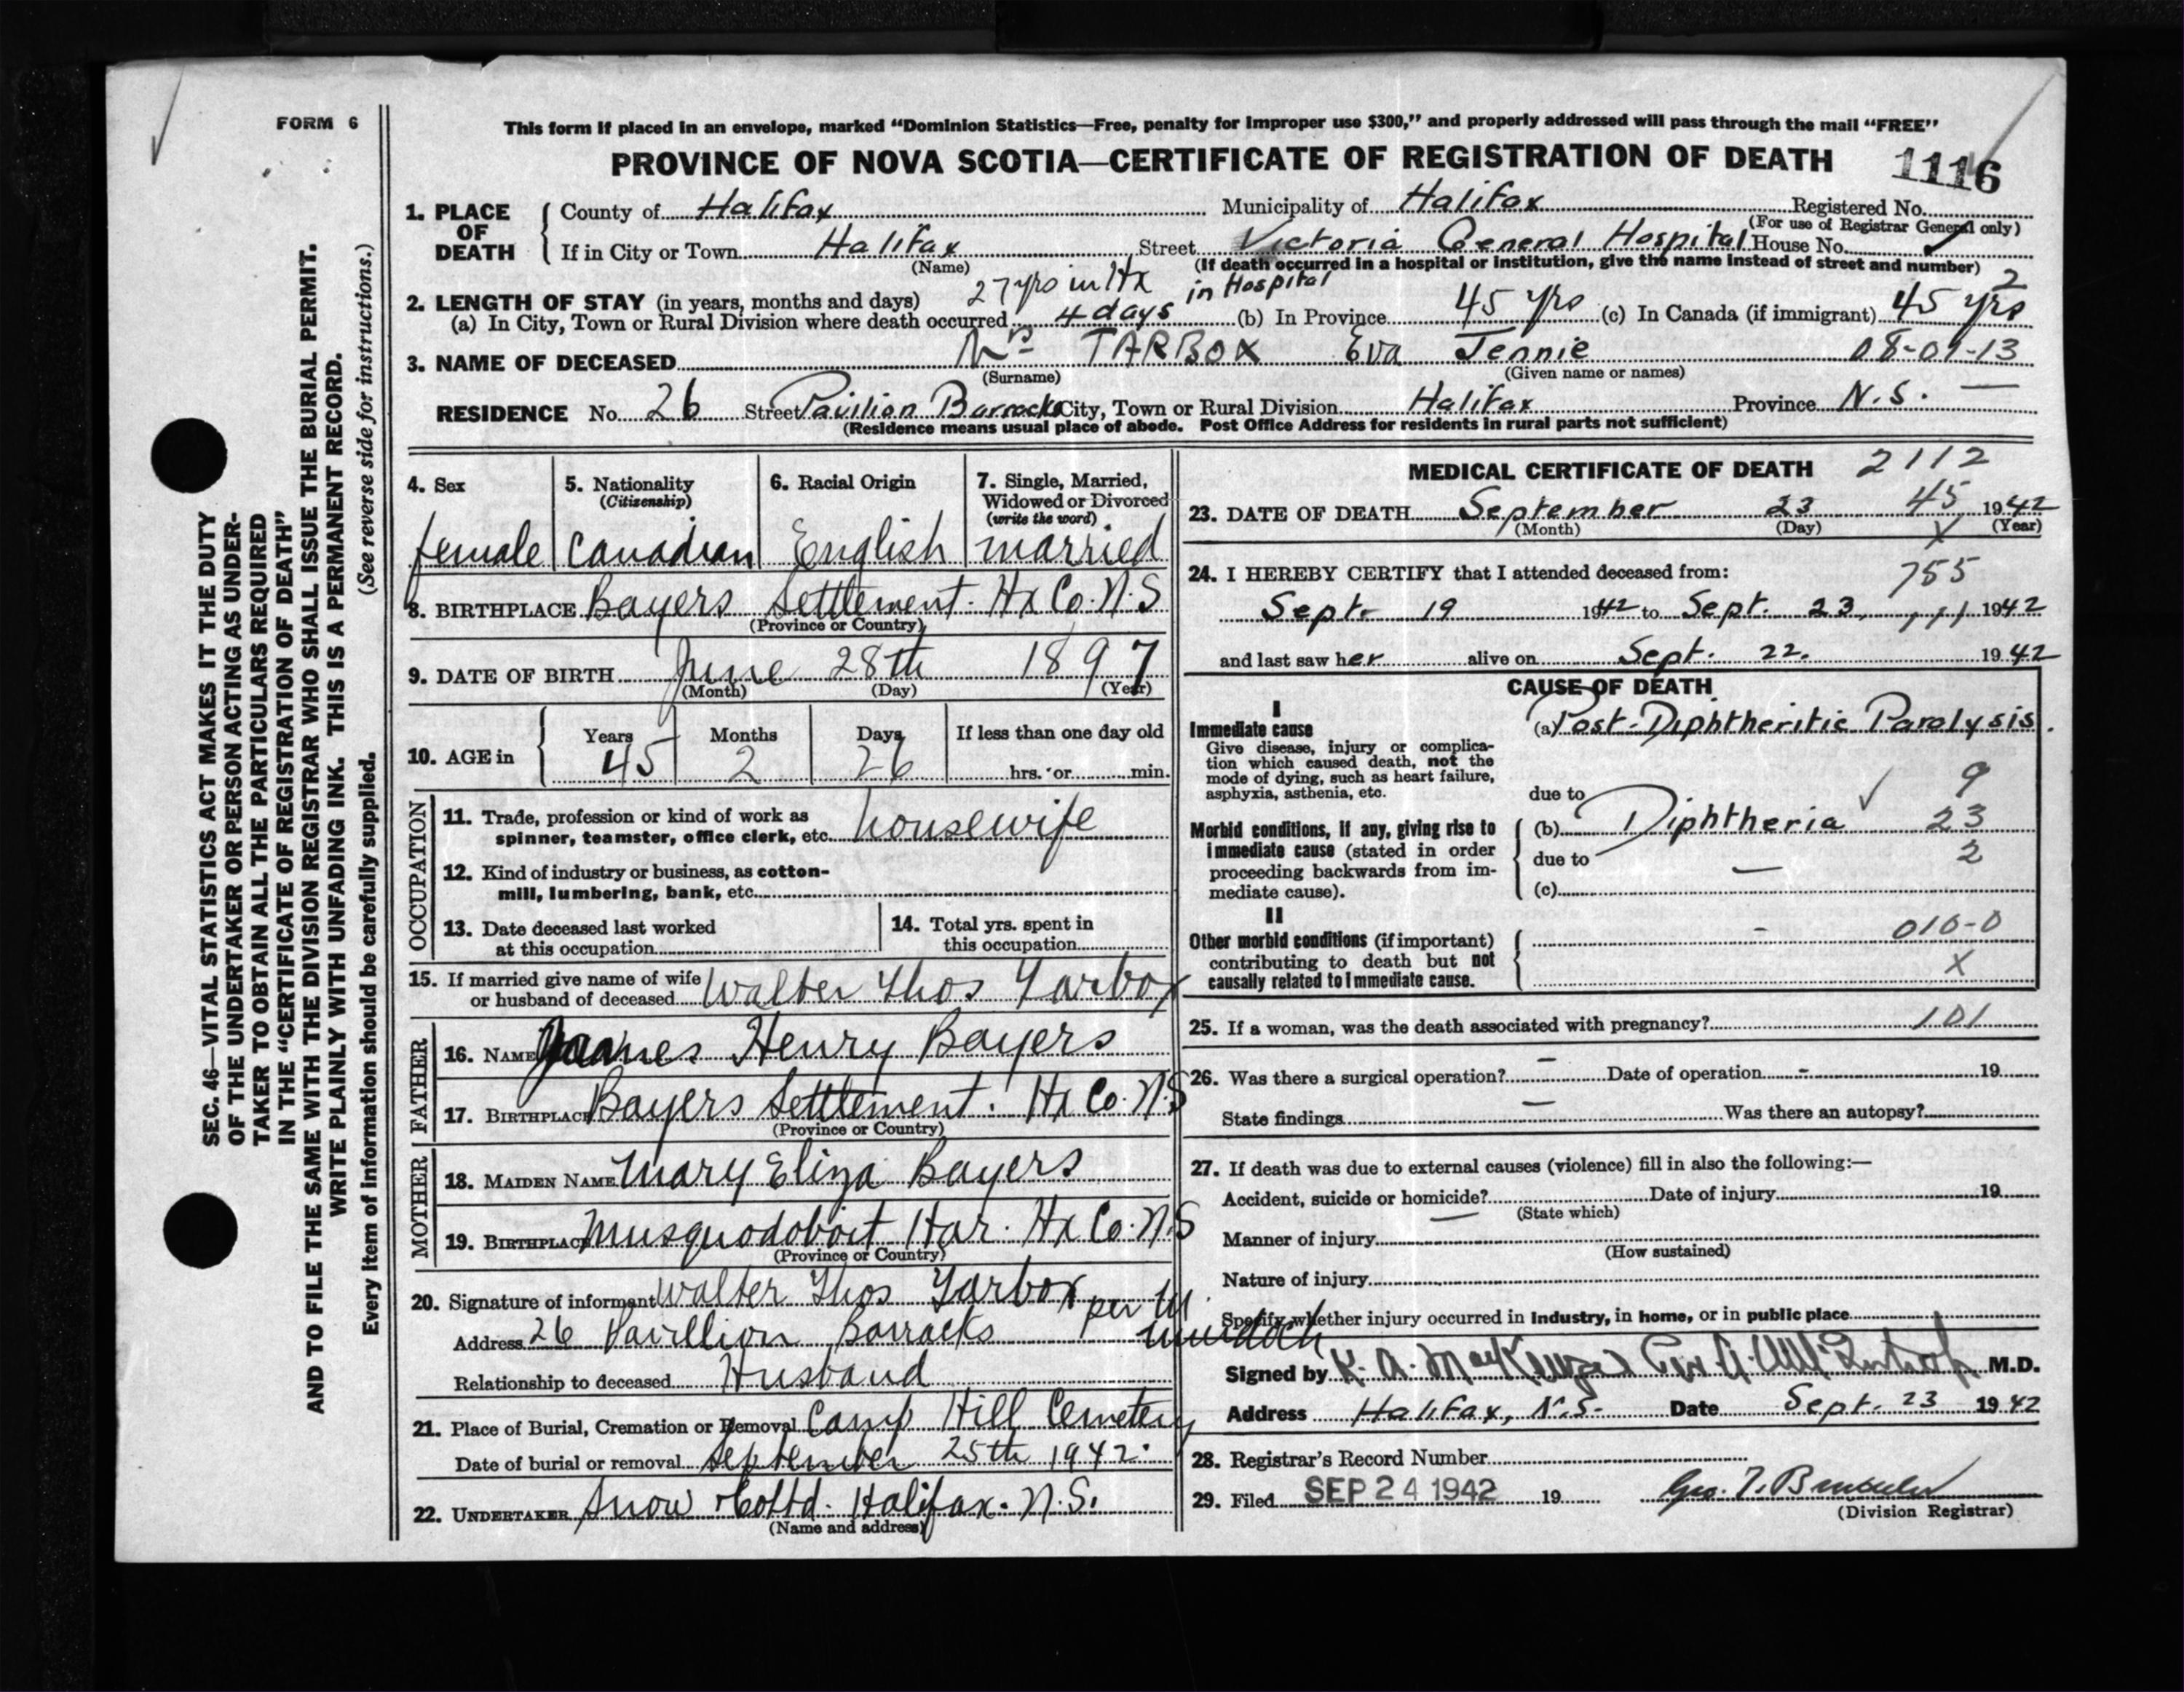 FORM 6
This form if placed in an envelope, marked “Dominion Statistics—Free, penalty for improper use $300,” and properly addressed will pass through the mail “FREE”
PROVINCE OF NOVA SCOTIA—CERTIFICATE OF REGISTRATION OF DEATH 1116
1. PLACE OF DEATH
County of Halifax Municipality of Halifax Registered No.
(For use of Registrar General only)
If in City or Town Halifax Street Victoria General Hospital House No.
(Name) (If death occurred in a hospital or institution, give the name instead of street and number)
27 yrs in Hx in Hospital 2
2. LENGTH OF STAY (in years, months and days)
(a) In City, Town or Rural Division where death occurred 4 days (b) In Province 45 yrs (c) In Canada (if immigrant) 45 yrs
3. NAME OF DECEASED Mrs TARBOX Eva Jennie 08-01-13
(Surname) (Given name or names)
RESIDENCE No. 26 Street Pavilion Barracks City, Town or Rural Division Halifax Province N.S. —
(Residence means usual place of abode. Post Office Address for residents in rural parts not sufficient)
4. Sex female
5. Nationality (Citizenship) Canadian
6. Racial Origin English
7. Single, Married, Widowed or Divorced (write the word) married
8. BIRTHPLACE Bayers Settlement. Hx Co. N.S
(Province or Country)
9. DATE OF BIRTH June 28th 1897
(Month) (Day) (Year)
10. AGE in Years 45 Months 2 Days 26 If less than one day old hrs. or min.
OCCUPATION
11. Trade, profession or kind of work as spinner, teamster, office clerk, etc. housewife
12. Kind of industry or business, as cotton-mill, lumbering, bank, etc.
13. Date deceased last worked at this occupation
14. Total yrs. spent in this occupation
15. If married give name of wife or husband of deceased Walter Thos Tarbox
FATHER
16. NAME James Henry Bayers
17. BIRTHPLACE Bayers Settlement. Hx Co. N.S
(Province or Country)
MOTHER
18. MAIDEN NAME Mary Eliza Bayers
19. BIRTHPLACE Musquodoboit Har. Hx Co. N.S
(Province or Country)
20. Signature of informant Walter Thos Tarbox per W. Murdoch
Address 26 Pavillion Barracks
Relationship to deceased Husband
21. Place of Burial, Cremation or Removal Camp Hill Cemetery
Date of burial or removal September 25th 1942.
22. UNDERTAKER Snow & Co Ltd. Halifax. N.S.
(Name and address)
MEDICAL CERTIFICATE OF DEATH 2112
23. DATE OF DEATH September 23 45 1942
(Month) (Day) X (Year)
24. I HEREBY CERTIFY that I attended deceased from: 755
Sept. 19 1942 to Sept. 23, 1942
and last saw her alive on Sept. 22. 1942
CAUSE OF DEATH
I
Immediate cause
Give disease, injury or complication which caused death, not the mode of dying, such as heart failure, asphyxia, asthenia, etc.
(a) Post-Diphtheritic Paralysis.
due to 9
Morbid conditions, if any, giving rise to immediate cause (stated in order proceeding backwards from immediate cause).
(b) Diphtheria ✓ 23
due to 2
(c) —
II
Other morbid conditions (if important) contributing to death but not causally related to immediate cause.
- 010-0
X
25. If a woman, was the death associated with pregnancy? 101
26. Was there a surgical operation? – Date of operation – 19
State findings — Was there an autopsy?
27. If death was due to external causes (violence) fill in also the following:—
Accident, suicide or homicide? — Date of injury 19
(State which)
Manner of injury
(How sustained)
Nature of injury
Specify whether injury occurred in industry, in home, or in public place
Signed by K. A. MacKenzie Per M.D.
Address Halifax, N.S. Date Sept. 23 1942
28. Registrar’s Record Number
29. Filed SEP 24 1942 19
(Division Registrar)
SEC. 46—VITAL STATISTICS ACT MAKES IT THE DUTY
OF THE UNDERTAKER OR PERSON ACTING AS UNDER-
TAKER TO OBTAIN ALL THE PARTICULARS REQUIRED
IN THE “CERTIFICATE OF REGISTRATION OF DEATH”
AND TO FILE THE SAME WITH THE DIVISION REGISTRAR WHO SHALL ISSUE THE BURIAL PERMIT.
WRITE PLAINLY WITH UNFADING INK. THIS IS A PERMANENT RECORD.
Every item of information should be carefully supplied. (See reverse side for instructions.)